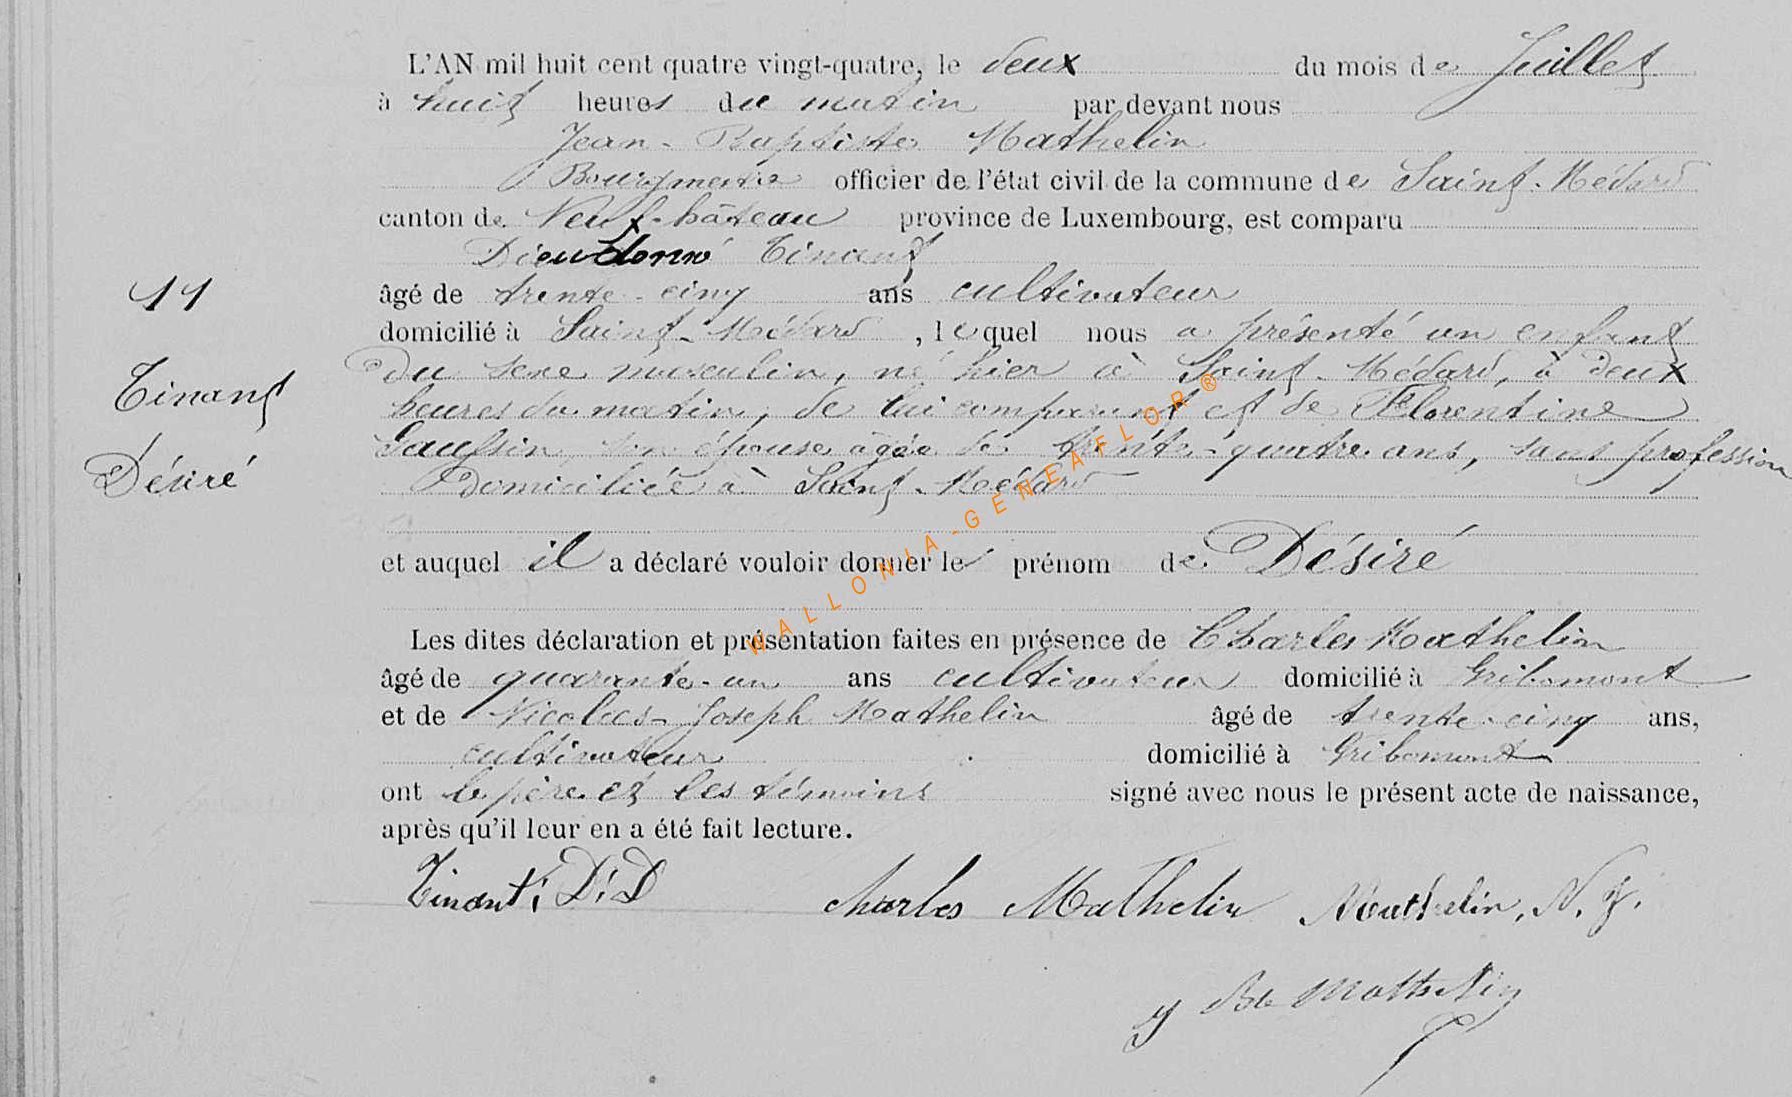 L'AN mil huit cent quatre vingt-quatre, le deux du mois de Juillet
à huit heures du matin par devant nous
Jean-Baptiste Mathelin
Bourgmestre officier de l'état civil de la commune de Saint-Médard
canton de Neufchâteau province de Luxembourg, est comparu
Dieudonné Tinant
11
âgé de trente-cinq ans cultivateur
domicilié à Saint-Médard, lequel nous a présenté un enfant
Tinant
du sexe masculin, né hier à Saint-Médard, à deux
heures du matin, de lui comparant et de Florentine
Gaussin, son épouse âgée de trente-quatre ans, sans profession
Désiré
domiciliée à Saint-Médard
et auquel il a déclaré vouloir donner le prénom de Désiré
Les dites déclaration et présentation faites en présence de Charles Mathelin
âgé de quarante-un ans cultivateur domicilié à Gribomont
et de Nicolas-Joseph Mathelin âgé de trente-cinq ans,
cultivateur domicilié à Gribomont
ont le père et les témoins signé avec nous le présent acte de naissance,
après qu'il leur en a été fait lecture.
Tinant D.D Charles Mathelin Mathelin, N. J.
J Bte Mathelin
WALLONIA-GENEAFLOR®